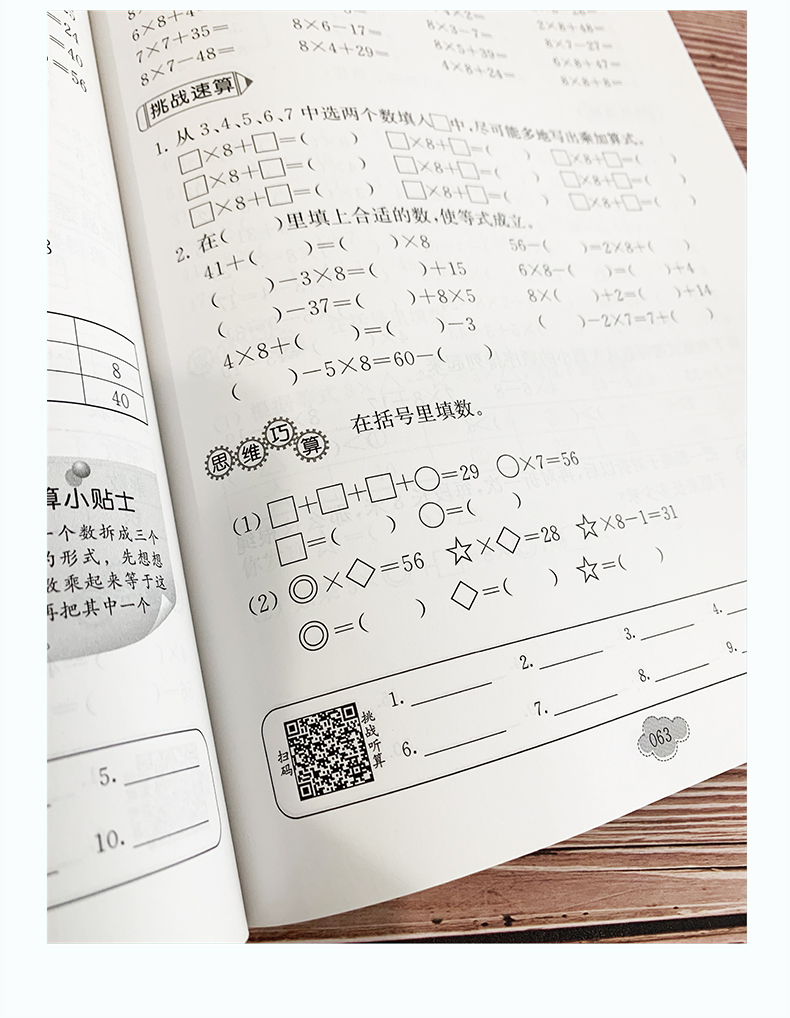 =24
=40
=56
8
8
40
算小贴士
一个数拆成三个
的形式，先想想
数乘起来等于这
再把其中一个
5.
10.
6×8+4
7×7+35=
8×7-48=
8×6-17=
8×4+29=
4×2=
8×3-7=
8×5+39=
4×8+24=
2×8+48=
8×7-27=
6×8+47=
8×8+8=
挑战速算
1. 从 3、4、5、6、7 中选两个数填入□中,尽可能多地写出乘加算式。
□×8+□=( ) □×8+□=( ) □×8+□=( )
□×8+□=( ) □×8+□=( ) □×8+□=( )
□×8+□=( ) □×8+□=( ) □×8+□=( )
2. 在( )里填上合适的数,使等式成立。
41+( )=( )×8 56-( )=2×8+( )
( )-3×8=( )+15 6×8-( )=( )+4
( )-37=( )+8×5 8×( )+2=( )+14
4×8+( )=( )-3 ( )-2×7=7+( )
( )-5×8=60-( )
思维巧算 在括号里填数。
(1) □+□+□+○=29 ○×7=56
□=( ) ○=( )
(2) ◎×◇=56 ☆×◇=28 ☆×8-1=31
◎=( ) ◇=( ) ☆=( )
扫码
挑战听算
1. 2. 3. 4.
6. 7. 8. 9.
063